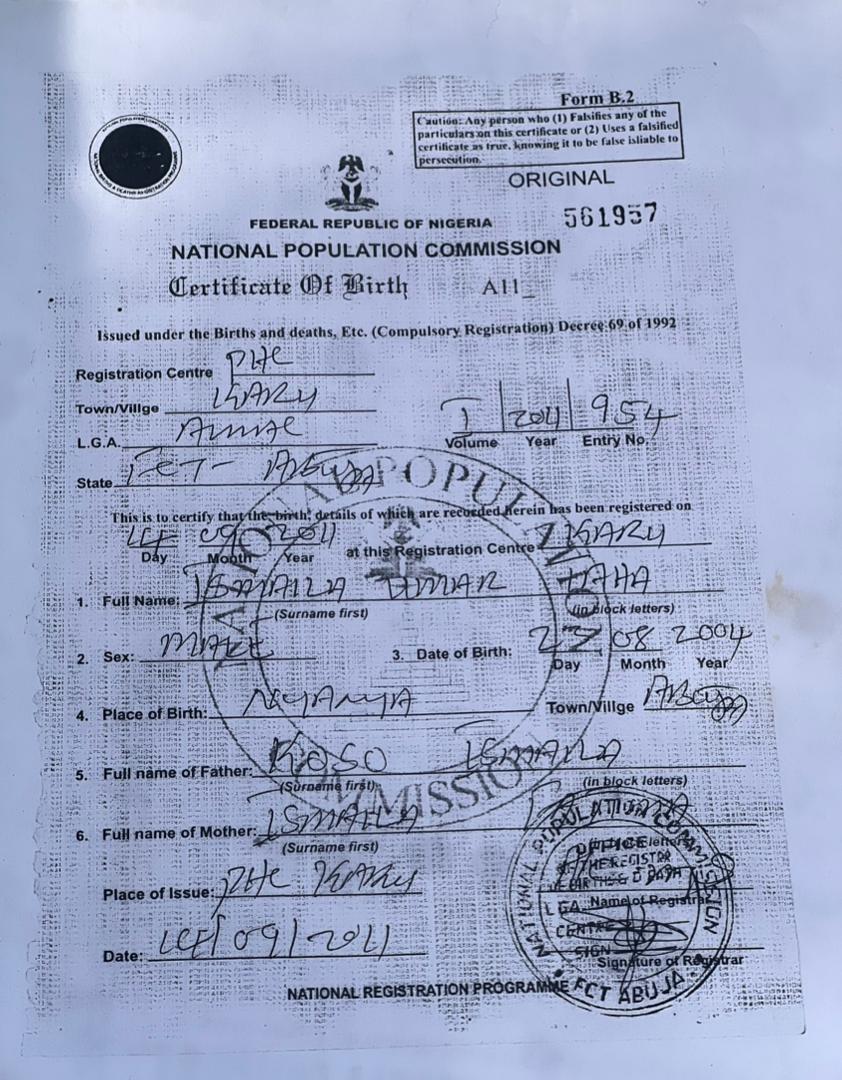 Form B.2
Caution: Any person who (1) Falsifies any of the
particulars on this certificate or (2) Uses a falsified
certificate as true, knowing it to be false isliable to
persecution.
ORIGINAL
561957
FEDERAL REPUBLIC OF NIGERIA
NATIONAL POPULATION COMMISSION
Certificate Of Birth A11
Issued under the Births and deaths, Etc. (Compulsory Registration) Decree 69 of 1992
Registration Centre PHC
Town/Villge
L.G.A.
1 2011 954
Volume Year Entry No.
State FCT - Abuja
This is to certify that the birth, details of which are recorded herein has been registered on
09 2011 at this Registration Centre
Day Month Year
1. Full Name: ISMAILA UMAR TAHA
(Surname first) (in block letters)
2. Sex: MALE 3. Date of Birth: 23 08 2004
Day Month Year
4. Place of Birth: NYANYA Town/Villge Abuja
5. Full name of Father: KOSO ISMAILA
(Surname first) (in block letters)
6. Full name of Mother: ISMAILA
(Surname first)
Place of Issue: PHC
Name of Registrar
Date: 09/2011
Signature of Registrar
NATIONAL REGISTRATION PROGRAMME
NATIONAL POPULATION COMMISSION
OFFICE
THE REGISTRAR
LGA
CENTRE
SIGN
FCT ABUJA